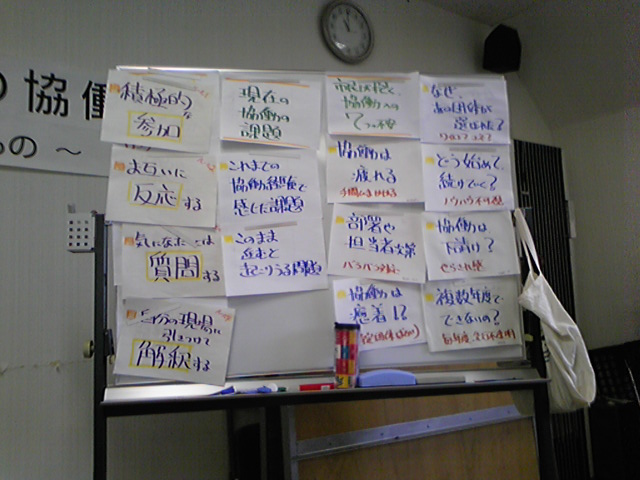 の協働
もの ～
積極的な
参加
お互いに
反応する
気になったことは
質問する
自分の現場に
引きつけて
解釈する
現在の
協働の
課題
これまでの
協働経験で
感じた課題
このまま
進むと
起こりうる問題
協働への
7つの不安
協働は
疲れる
部署や
担当者次第
バラバラ対応
協働は
癒着!?
なぜ、
あの団体が
選ばれた?
どう始めて
続けていく?
ノウハウ不足
協働は
下請け?
やらされ感
複数年度で
できないの?